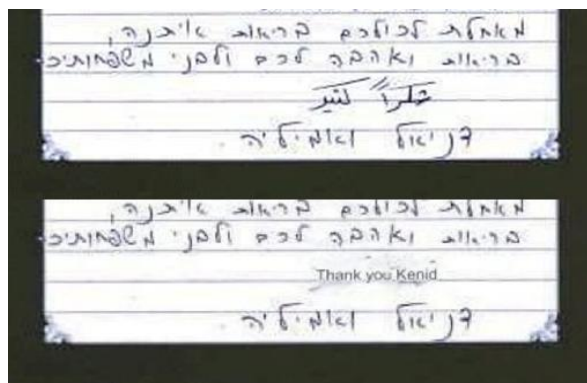 מאחלת לכולכם בריאות איתנה,
בריאות ואהבה לכם ולבני משפחותיכ
شكراً كتير
דניאל ואמיליה
מאחלת לכולכם בריאות איתנה,
בריאות ואהבה לכם ולבני משפחותיכ
Thank you Kenid
דניאל ואמיליה